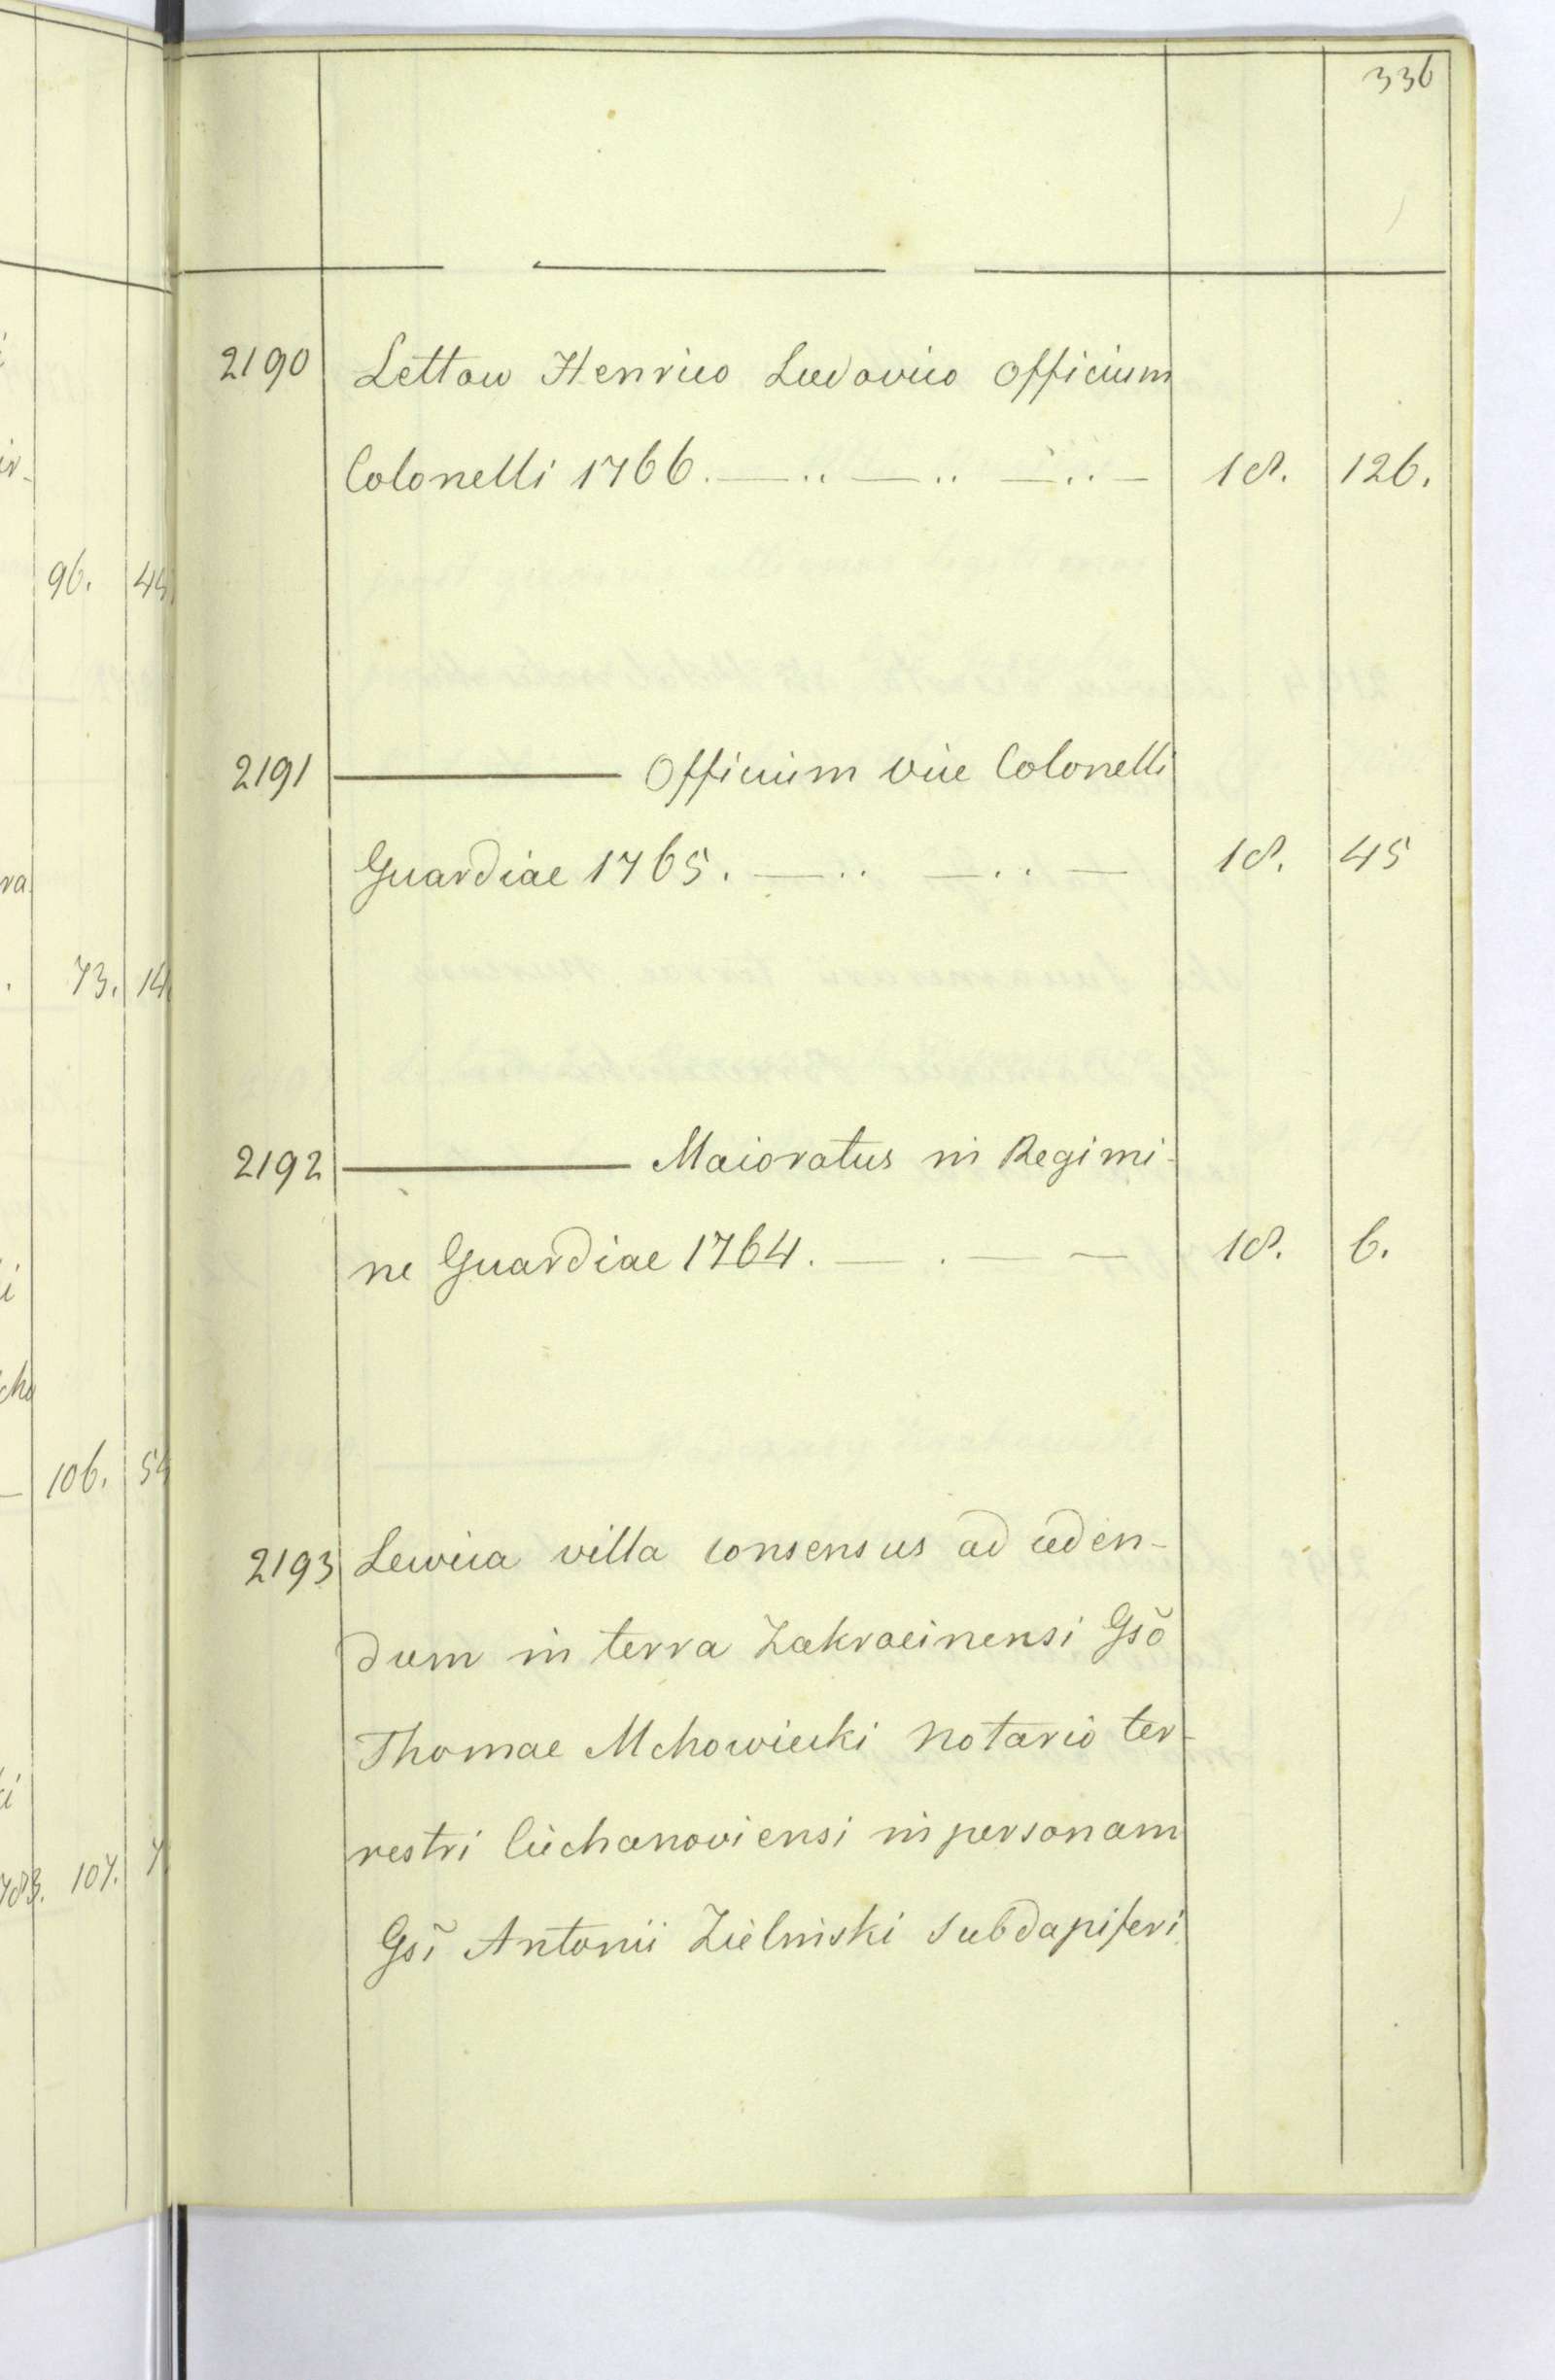 336
2190 Lettow Henrico Ludovico Officium
Colonelli 1766. 18. 126.
2191 Officium vice Colonelli
Guardiae 1765. 18. 45
2192 Maioratus in Regimi-
ne Guardiae 1764. 18. 6.
2193 Lewica villa consensus ad ceden-
dum in terra Zakrocinensi Gsõ
Thomae Mchowiecki notario ter-
restri Ciechanoviensi in personam
Gsĩ Antonii Zieliński subdapiferi
96. 44
73. 14.
106. 54
107. 7